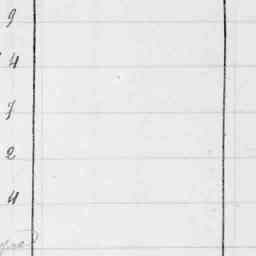 9
4
9
2
4